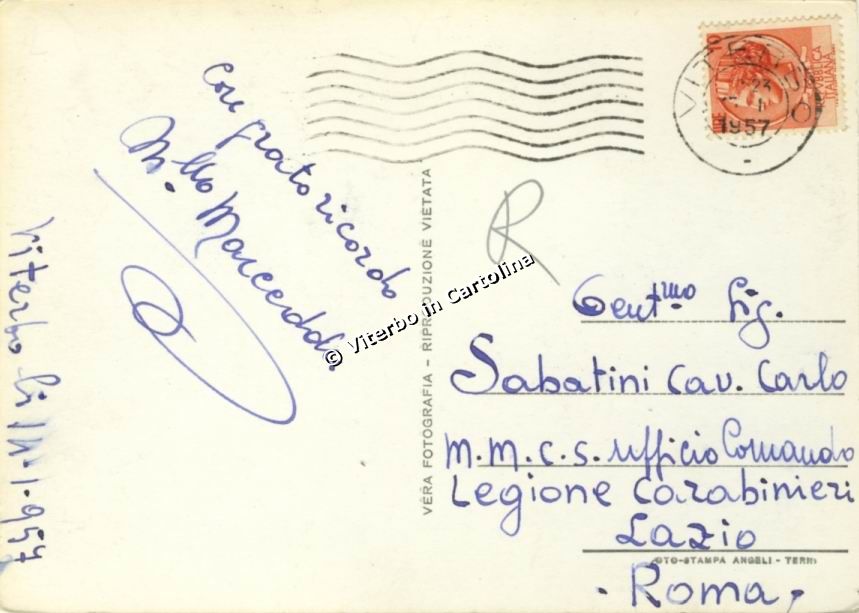 Con grato ricordo
M.llo Marcedda
Viterbo li 14-1-957
VERA FOTOGRAFIA - RIPRODUZIONE VIETATA
© Viterbo in Cartolina
R
VITERBO
1957
REPUBBLICA
ITALIANA
Gent.mo Sig.
Sabatini Cav. Carlo
M.M.C.S. Ufficio Comando
Legione Carabinieri
Lazio
OTO-STAMPA ANGELI - TERNI
Roma